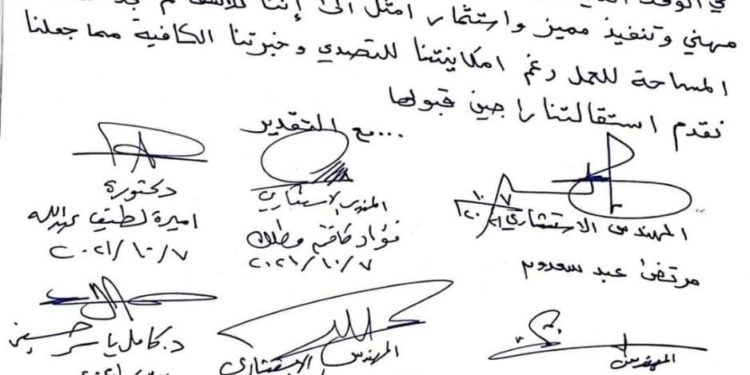 في الوقت
مهني وتنفيذ مميز واستثمار امثل الى إننا للأسف لم
المساحة للعمل رغم امكانيتنا للتصدي وخبرتنا الكافية مما جعلنا
نقدم استقالتنا راجين قبولها
...مع التقدير
المهندس الاستشاري
مرتضى عبد سعدون
الاستشاري
فؤاد كاظم
٢٠٢١/١٠/٧
دكتورة
اميرة لطيف عبدالله
٢٠٢١/١٠/٧
المهندس
المهندس الاستشاري
د. كامل ياسر حسين